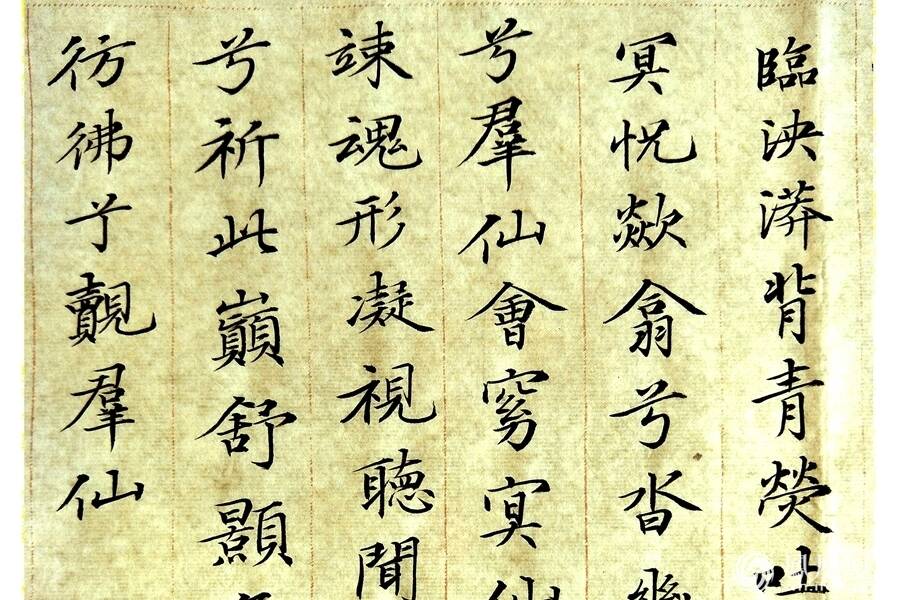 臨泱漭背青熒吐
冥怳欻翕兮沓
兮羣仙會窈冥仙
竦魂形凝視聽聞
兮祈此巔舒顥
彷彿兮覿羣仙